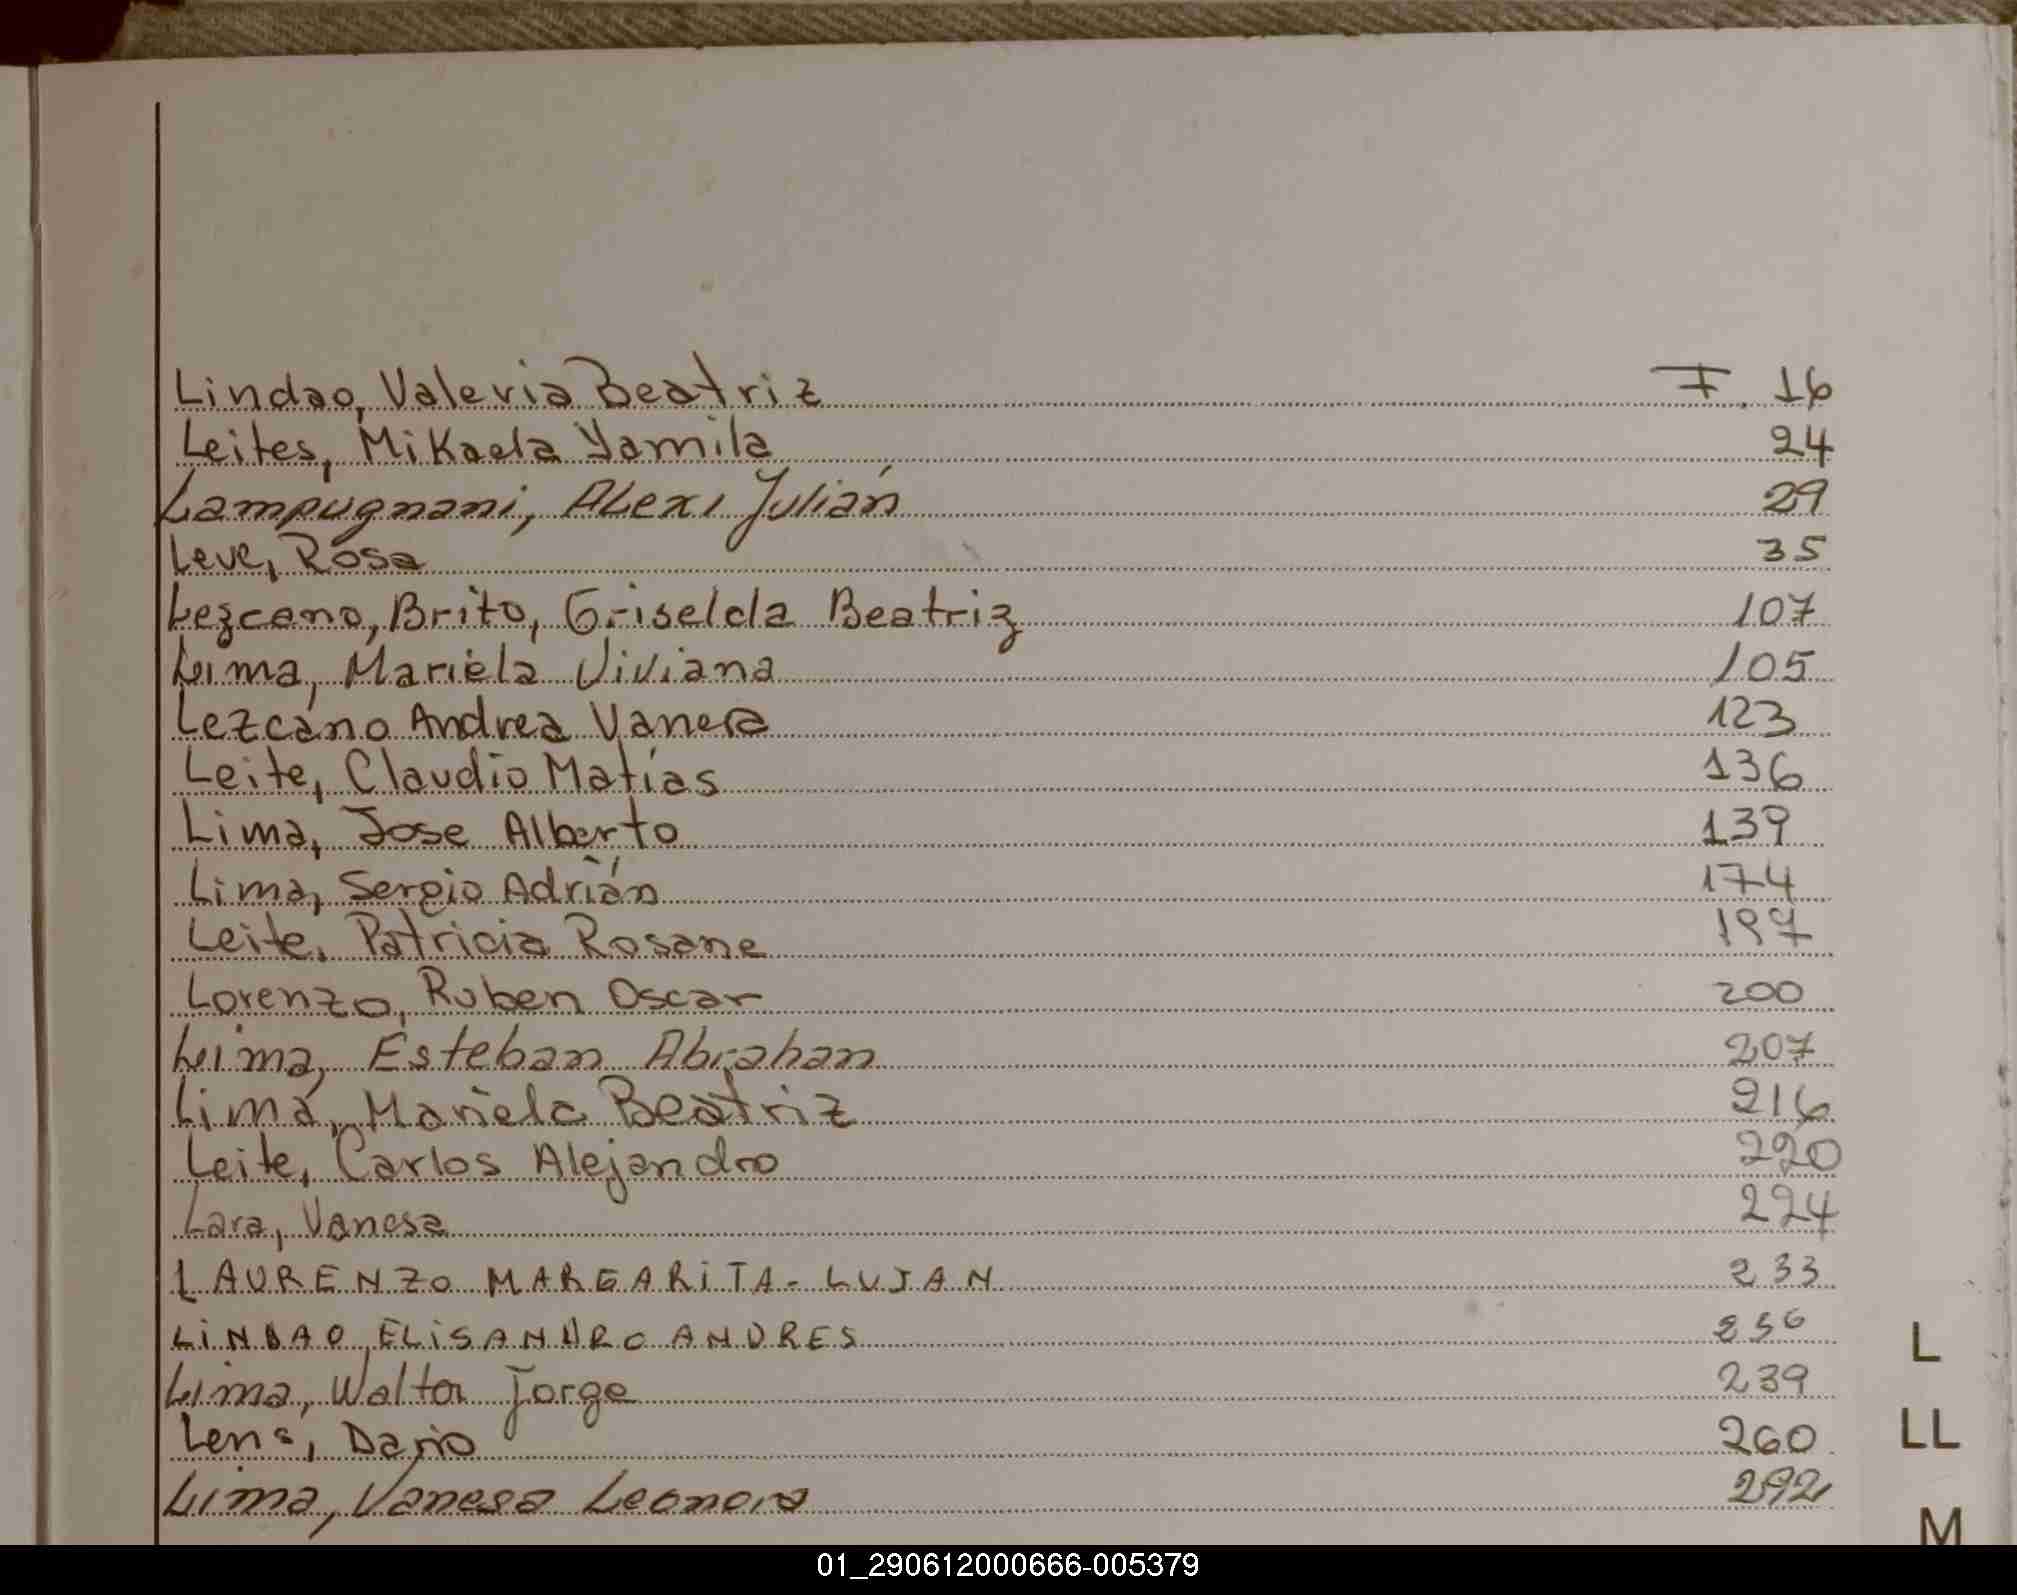 Lindao, Valeria Beatriz F. 16
Leites, Mikaela Yamila 24
Lampugnani, Alexi Julián 29
Leve, Rosa 35
Lezcano, Brito, Griselda Beatriz 107
Lima, Mariela Viviana 105
Lezcano Andrea Vanesa 123
Leite, Claudio Matías 136
Lima, Jose Alberto 139
Lima, Sergio Adrián 174
Leite, Patricia Rosane 197
Lorenzo, Ruben Oscar 200
Lima, Esteban Abrahan 207
Lima, Mariela Beatriz 216
Leite, Carlos Alejandro 220
Lara, Vanesa 224
LAURENZO MARGARITA- LUJAN 233
LINDAO, ELISANDRO ANDRES 236
Lima, Walter Jorge 239
Lens, Dario 260
Lima, Vanesa Leonora 292
L
LL
M
01_290612000666-005379